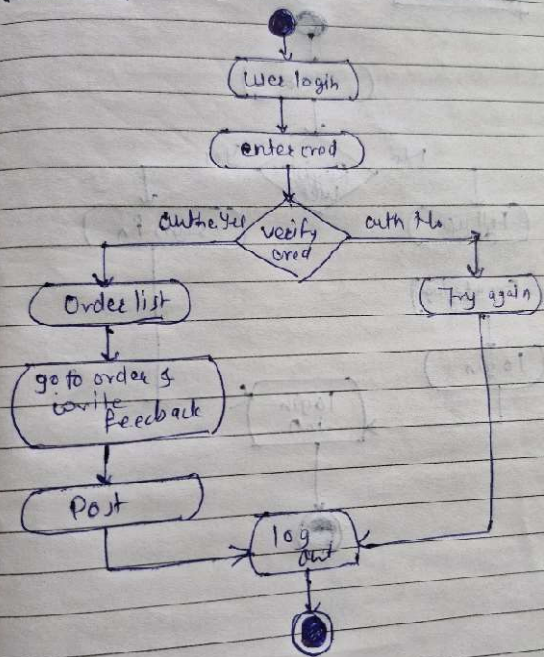 User login
enter cred
auth Yes
verify
cred
auth No
Order list
Try again
go to order &
write
feecback
Post
log
out